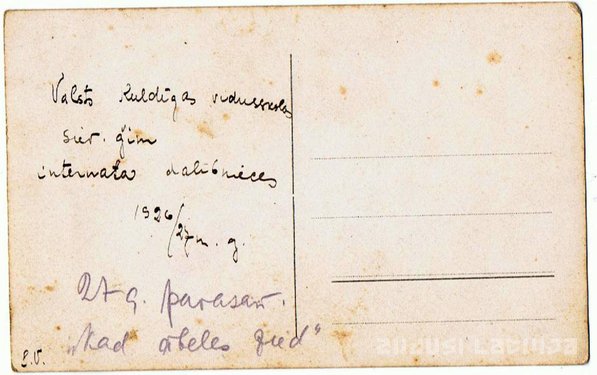 Valsts Kuldīgas vidusskolas
siev. ģim
internata dalibnieces
1926/27 m. g.
27 g. pavasarī.
„Kad ābeles zied"
E.V.
Zudusi Latvija